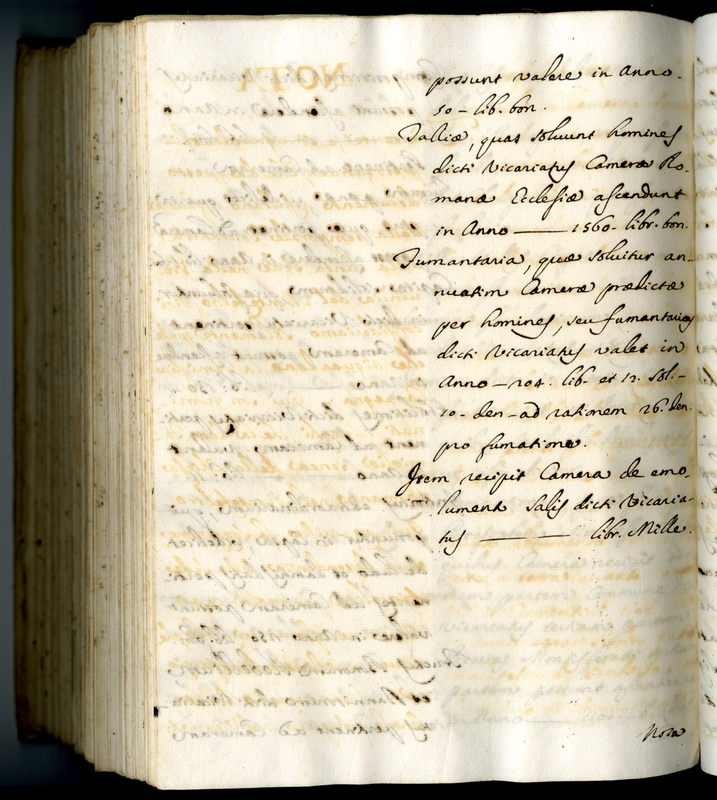 possunt valere in Anno.
50 – lib. bon.
Talliæ, quas solvunt homines
dicti Vicariatus Cameræ Ro-
manæ Ecclesiæ ascendunt
in Anno —— 1560. libr. bon.
Fumantaria, quæ solvitur an-
nuatim Cameræ prædictæ
per homines, seu fumantarios
dicti Vicariatus valet in
Anno – 204. lib. et 12. sol. –
10. den – ad rationem 26. den.
pro fumatione.
Item recipit Camera de emo-
lument. salis dicti Vicaria-
tus —— libr. Mille.
Nota